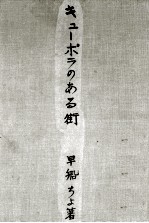 キューポラのある街
早船ちよ著